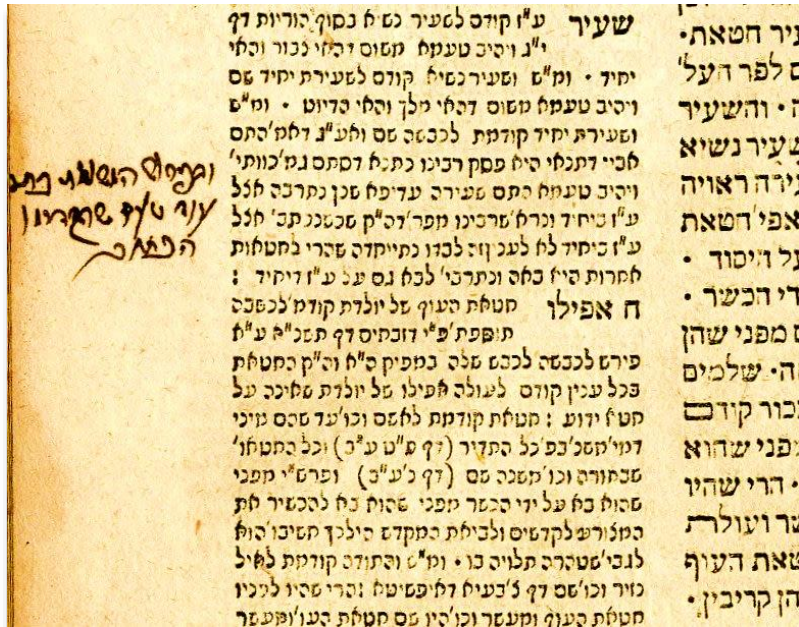 שעיר ע"ז קודם לשעיר נשיא בסוף הוריות דף
י"ג ויהיב טעמא משום דהאי צבור והאי
יחיד · ומ"ש ושעיר נשיא קודם לשעירת יחיד שם
ויהיב טעמא משום דהאי מלך והאי הדיוט · ומ"ש
ושעירת יחיד קודמת לכבשה שם ואע"ג דאמ' התם
אביי דתנאי היא פסק רבינו כתנא דסתם גמ' כוותי'
ויהיב טעמא התם שעירה עדיפא שכן נתרבה אצל
ע"ז ביחיד ונרא' שרבינו מפר' דה"ק שכשנכתב' אצל
ע"ז ביחיד לא לענין זה לבדו נתייחדה שהרי בחטאות
אחרות היא באה ונתרבי' לבא גם על ע"ז דיחיד :
ח אפילו חטאת העוף של יולדת קודמ' לכשבה
תוספת' פ"י דזבחים דף תשנ"א ע"א
פירש לכבשה לכבש שלה במפיק ה"א וה"ק החטאת
בכל ענין קודם לעולה אפילו של יולדת שאינה על
חטא ידוע : חטאת קודמת לאשם וכו' עד שהם מיני
דמי' משנ' בפ' כל התדיר (דף פ"ט ע"ב) וכל החטאו'
שבתורה וכו' משנה שם (דף צ' ע"ב) ופרש"י מפני
שהוא בא על ידי הכשר מפני שהוא בא להכשיר את
המצורע לקדשים ולביאת המקדש הילכך חשיבו הוא
לגבי שטהרה תלויה בו · ומ"ש והתודה קודמת לאיל
נזיר וכו' שם דף צ' בעיא דאיפשיטא : הרי שהיו לפניו
חטאת העוף ומעשר וכו' היו שם חטאת העו' ומעשר
ובפירוש המשניות כתב
עוד טעם
הכתוב
עיר חטאת·
ם לפר העל'
ה· והשעיר
שעיר נשיא
עירה ראויה
אפי' חטאת
על היסוד ·
די הכשר ·
ם מפני שהן
זה· שלמים
כור קודם
מפני שהוא
· הרי שהיו
שר ועולת
טאת העוף
הן קריבין·